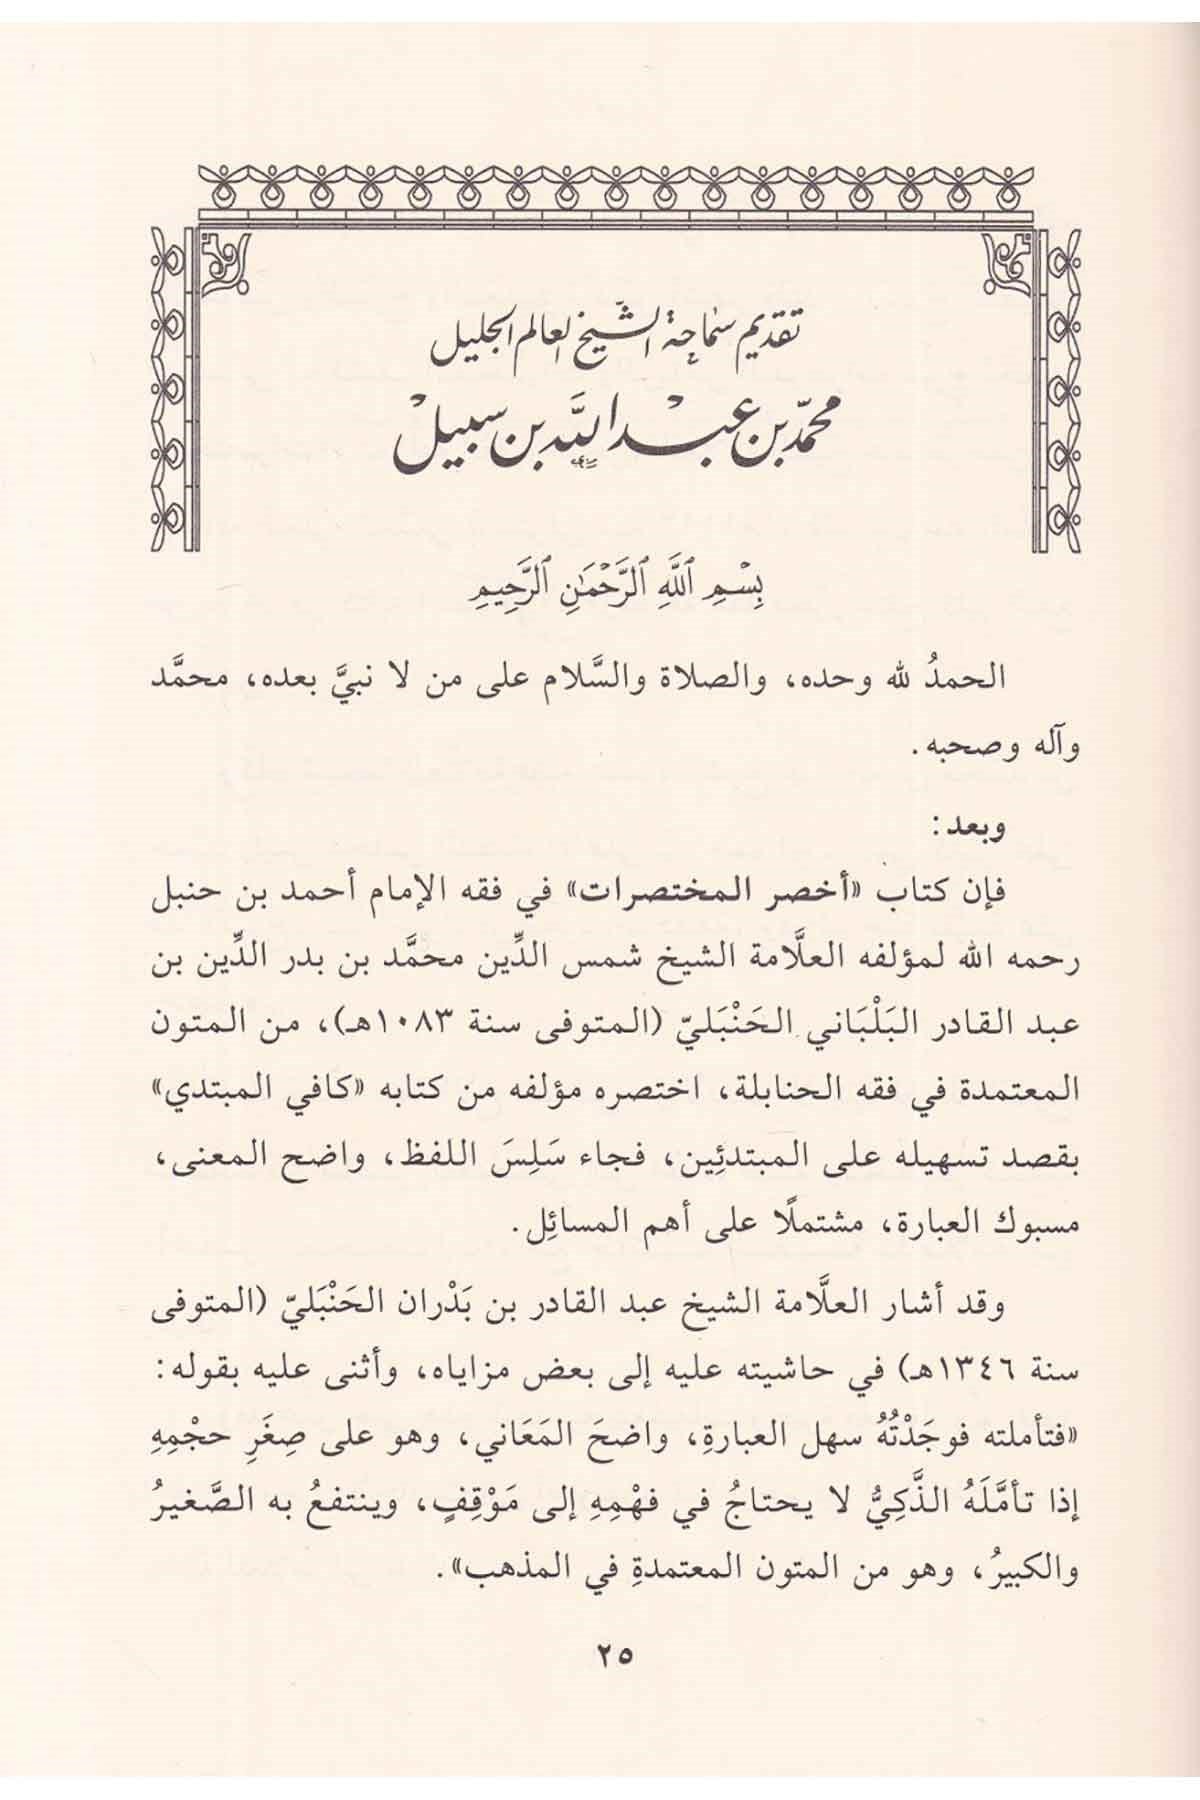 تقديم سماحة الشيخ العالم الجليل
محمّد بن عبد الله بن سبيل
بِسْمِ ٱللَّهِ ٱلرَّحْمَٰنِ ٱلرَّحِيمِ
الحمدُ لله وحده، والصلاة والسَّلام على من لا نبيَّ بعده، محمَّد
وآله وصحبه.
وبعد:
فإن كتاب «أخصر المختصرات» في فقه الإمام أحمد بن حنبل
رحمه الله لمؤلفه العلَّامة الشيخ شمس الدِّين محمَّد بن بدر الدِّين بن
عبد القادر البَلْبَاني الحَنْبَليّ (المتوفى سنة ١٠٨٣هـ)، من المتون
المعتمدة في فقه الحنابلة، اختصره مؤلفه من كتابه «كافي المبتدي»
بقصد تسهيله على المبتدئِين، فجاء سَلِسَ اللفظ، واضح المعنى،
مسبوك العبارة، مشتملًا على أهم المسائِل.
وقد أشار العلَّامة الشيخ عبد القادر بن بَدْران الحَنْبَليّ (المتوفى
سنة ١٣٤٦هـ) في حاشيته عليه إلى بعض مزاياه، وأثنى عليه بقوله:
«فتأملته فوجَدْتُهُ سهل العبارةِ، واضحَ المَعَاني، وهو على صِغَرِ حجْمِهِ
إذا تأمَّلَهُ الذَّكِيُّ لا يحتاجُ في فهْمِهِ إلى مَوْقِفٍ، وينتفعُ به الصَّغيرُ
والكبيرُ، وهو من المتون المعتمدةِ في المذهب».
٢٥